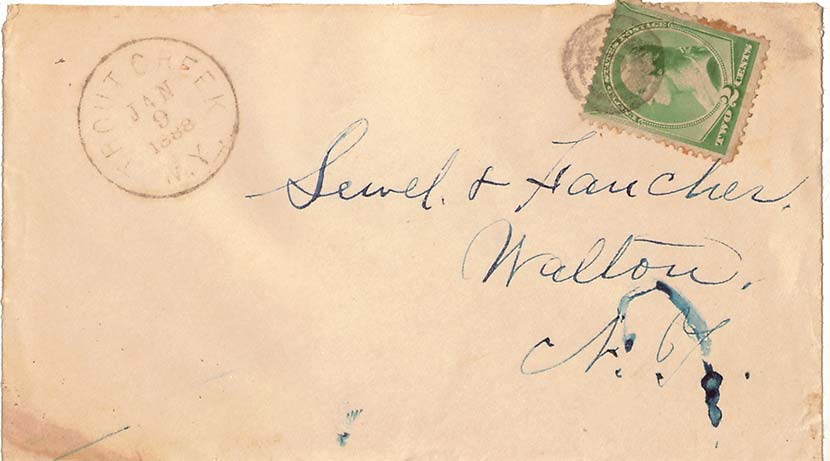 TROUT CREEK
JAN
9
1888
N.Y.
UNITED STATES POSTAGE
2
TWO CENTS
Sewel. & Fancher.
Walton,
N. Y.